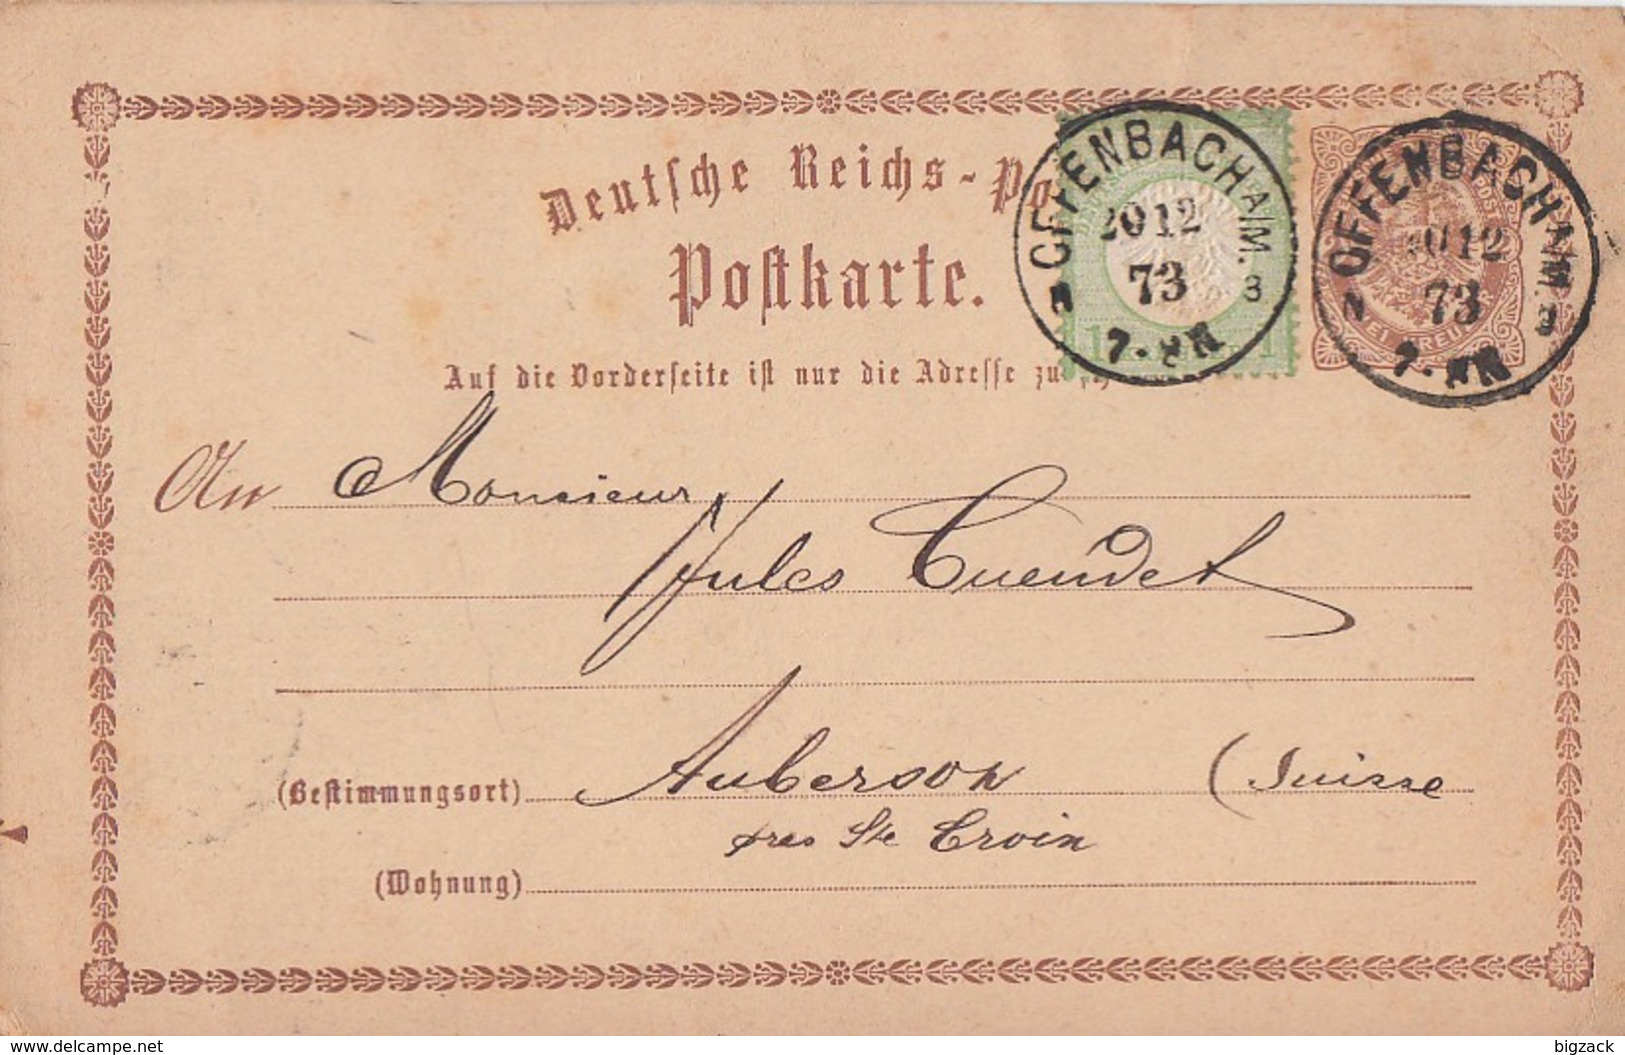 Deutsche Reichs-Po
Postkarte.
Auf die Vorderseite ist nur die Adresse zu
OFFENBACH A/M. 3
20 12
73
7-8 N
OFFENBACH A/M. 3
12
73
7-8 N
An Monsieur
Jules Cuendet
(Bestimmungsort) Auberson (Suisse
près Ste Croix
(Wohnung)
www.delcampe.net
bigzack